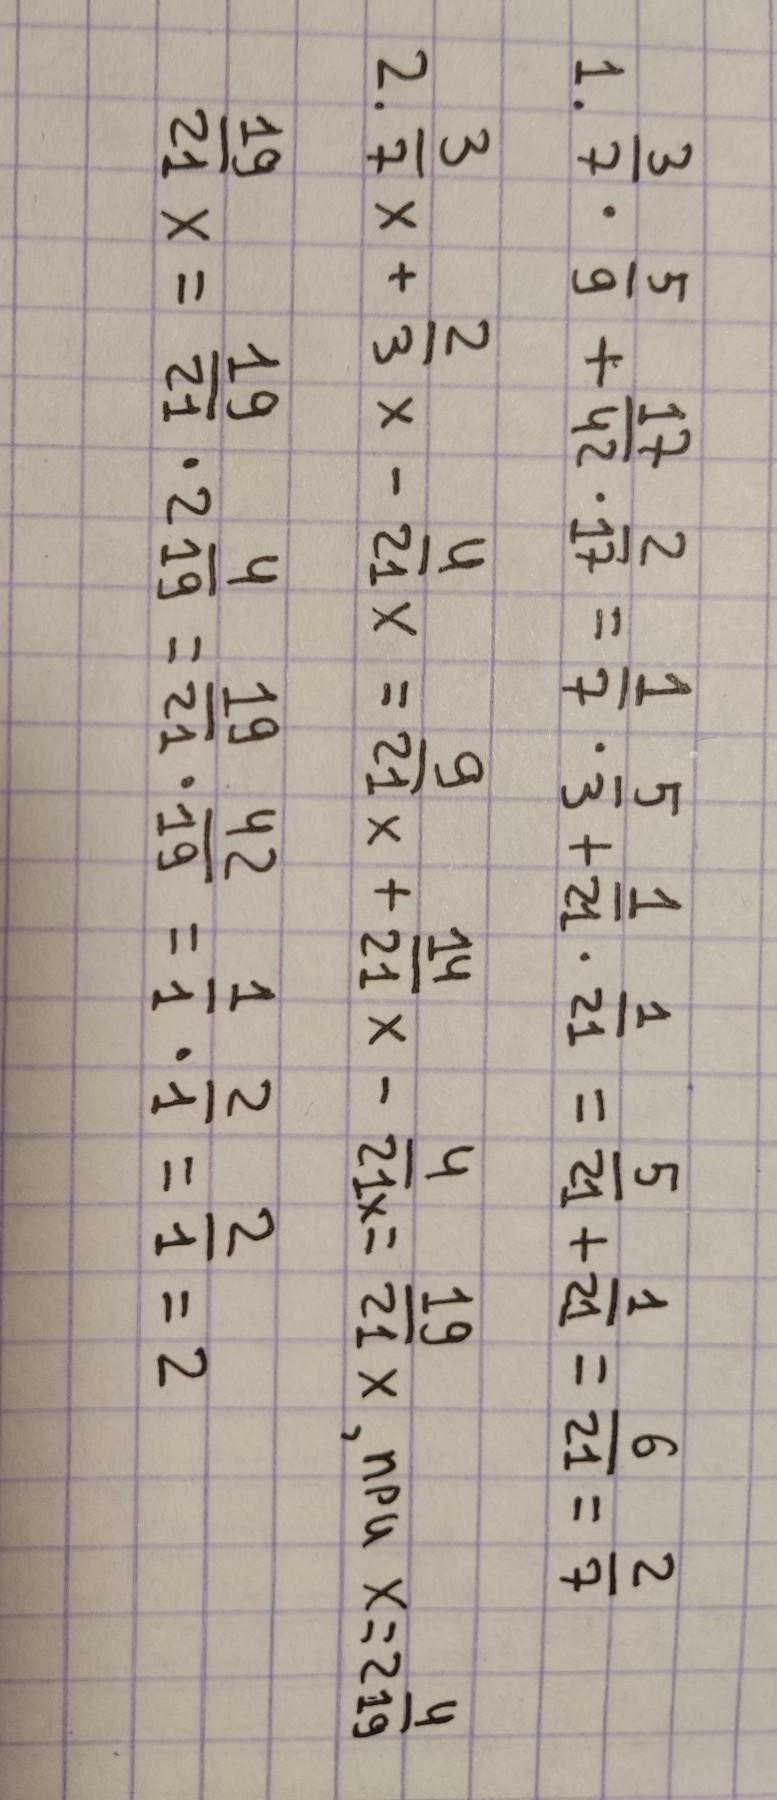 1. 3/7 · 5/9 + 17/42 · 2/17 = 1/7 · 5/3 + 1/21 · 1/21 = 5/21 + 1/21 = 6/21 = 2/7
2. 3/7 x + 2/3 x - 4/21 x = 9/21 x + 14/21 x - 4/21 x = 19/21 x, при x = 2 4/19
19/21 x = 19/21 · 2 4/19 = 19/21 · 42/19 = 1/1 · 2/1 = 2/1 = 2